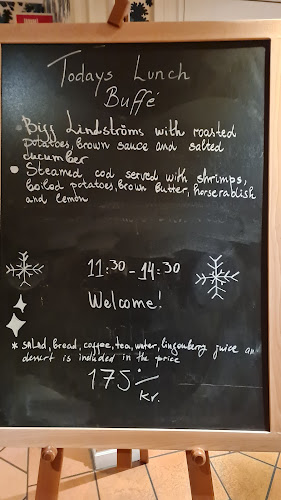 Todays Lunch
Buffé
• Biff Lindströms with roasted
potatoes, brown sauce and salted
cucumber
• Steamed cod served with shrimps,
boiled potatoes, brown butter, horserabish
and lemon
11:30 - 14:30
Welcome!
* SALAD, Bread, coffee, tea, water, lingonberry juice an
dessert is included in the price
175:-
kr.